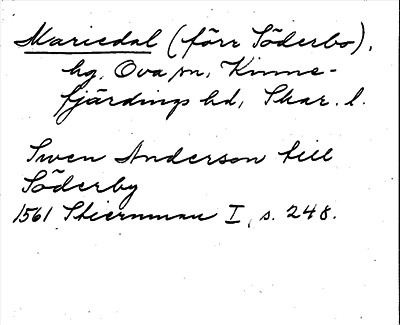 Mariedal (förr Söderbo),
hg, Ova sn, Kinne-
fjärdings hd, Skar. l.
Swen Anderson till
Söderby
1561 Stiernman I, s. 248.